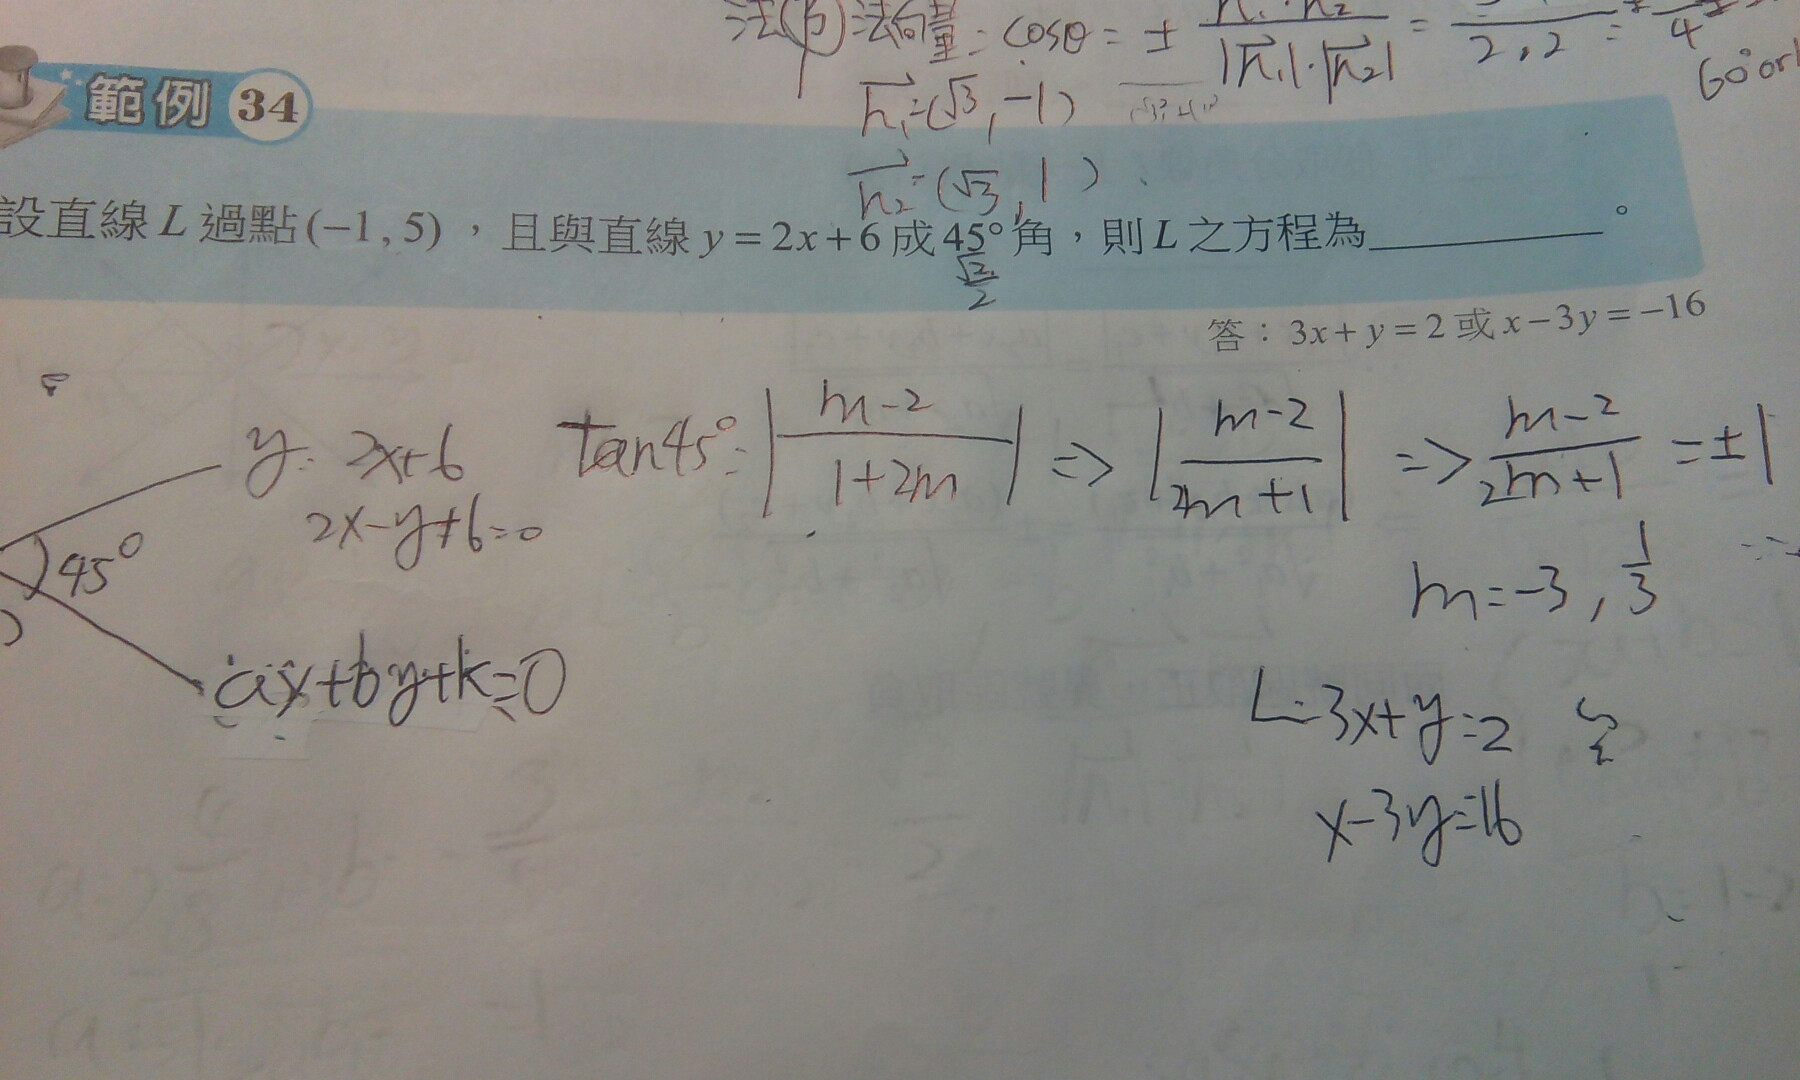 法(向)法向量: cosθ = ± n₁·n₂ / |n₁|·|n₂| = / 2·2 = ± / 4
60°or
n₁=(√3,-1)
n₂=(√3,1)
範例 34
設直線 L 過點(−1,5),且與直線 y=2x+6 成 45° 角,則 L 之方程為________。
√2/2
答:3x+y=2 或 x−3y=−16
y=2x+6
2x-y+6=0
45°
ax+by+k=0
tan45°=|m-2 / 1+2m| => |m-2 / 2m+1| => m-2 / 2m+1 = ±1
m=-3, 1/3
L=3x+y=2
x-3y=16